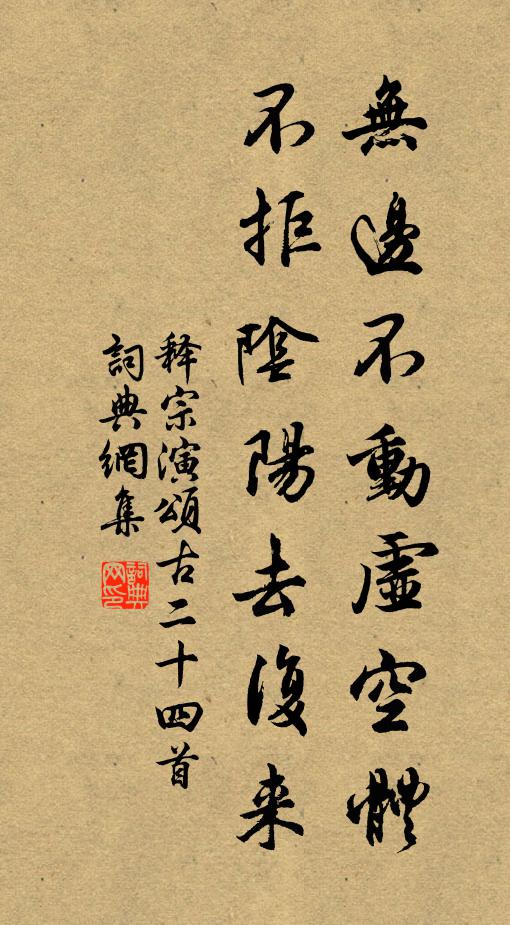 無邊不動虛空體
不拒陰陽去復来
释宗演頌古二十四首
詞典網集
詞典网印